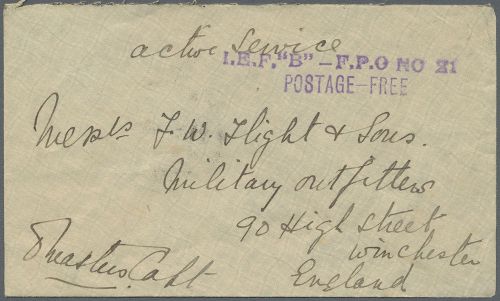 active service
I.E.F. "B" - F.P.O NO 21
POSTAGE-FREE
Messrs F. W. Flight & Sons.
Military outfitters
90 High Street
Winchester
England
Masters. Capt